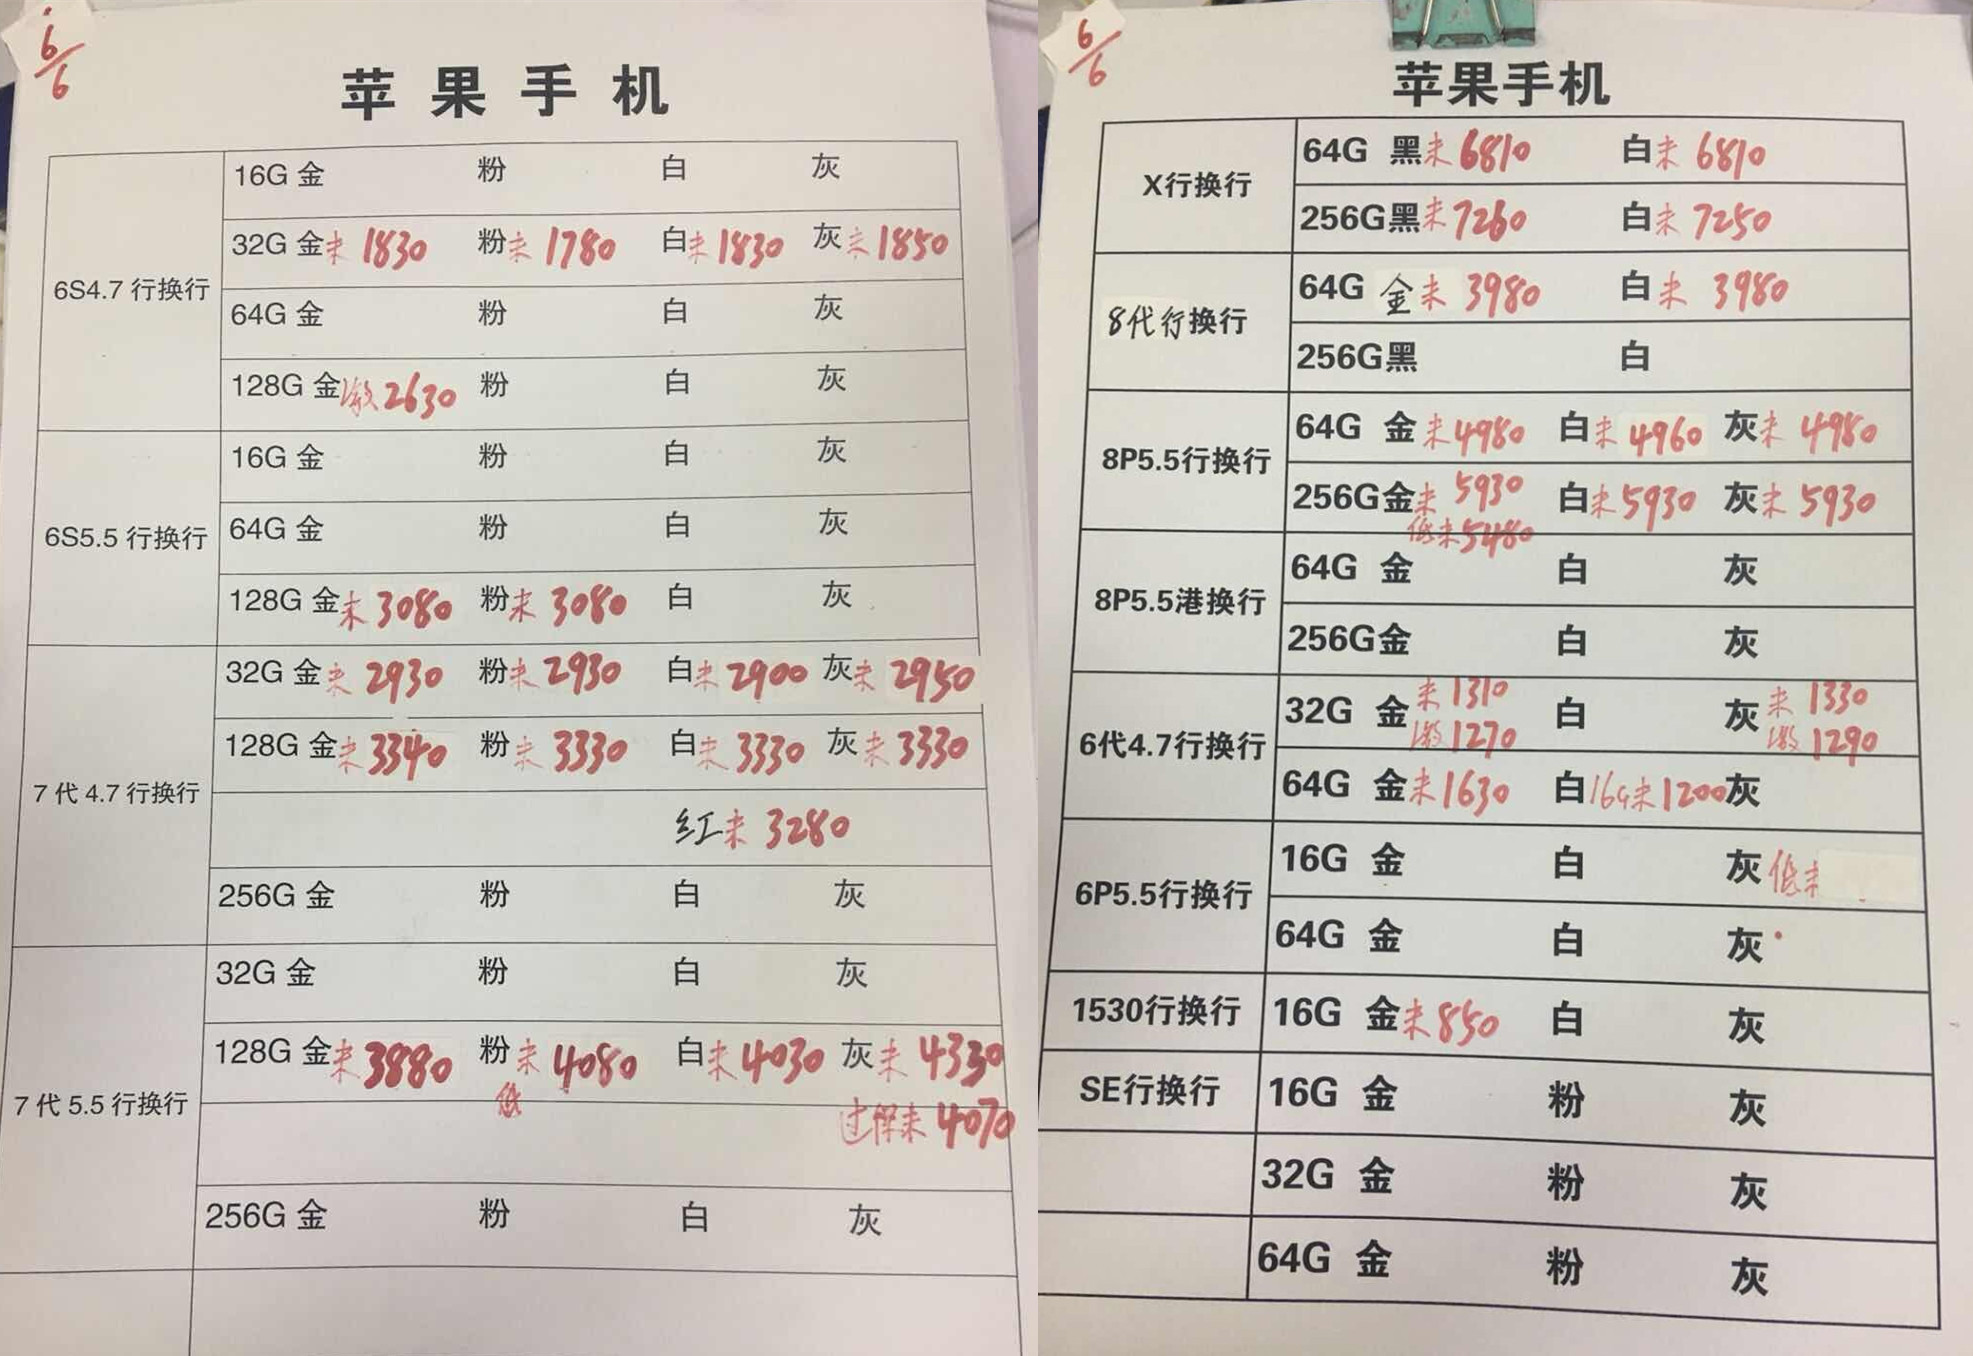 6/6
苹果手机
6S4.7 行换行
16G 金 粉 白 灰
32G 金未 1830 粉未 1780 白未 1830 灰未 1850
64G 金 粉 白 灰
128G 金激 2630 粉 白 灰
6S5.5 行换行
16G 金 粉 白 灰
64G 金 粉 白 灰
128G 金未 3080 粉未 3080 白 灰
7 代 4.7 行换行
32G 金未 2930 粉未 2930 白未 2900 灰未 2950
128G 金未 3340 粉未 3330 白未 3330 灰未 3330
红未 3280
256G 金 粉 白 灰
7 代 5.5 行换行
32G 金 粉 白 灰
128G 金未 3880 粉未 4080 白未 4030 灰未 4330
低
过保未 4070
256G 金 粉 白 灰
6/6
苹果手机
X行换行
64G 黑未 6810 白未 6810
256G黑未 7260 白未 7250
8代行换行
64G 金未 3980 白未 3980
256G黑 白
8P5.5行换行
64G 金未 4980 白未 4960 灰未 4980
256G金未 5930 白未 5930 灰未 5930
低未 5480
8P5.5港换行
64G 金 白 灰
256G金 白 灰
6代4.7行换行
32G 金未 1310 白 灰未 1330
激 1270 激 1290
64G 金未 1630 白16G未 1200 灰
6P5.5行换行
16G 金 白 灰低未
64G 金 白 灰
1530行换行
16G 金未 850 白 灰
SE行换行
16G 金 粉 灰
32G 金 粉 灰
64G 金 粉 灰